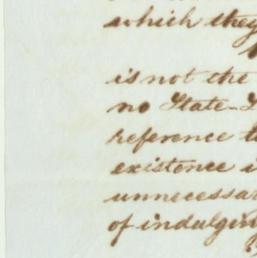 which they
is not the
no State-
reference t
existence i
unnecessar
of indulgin